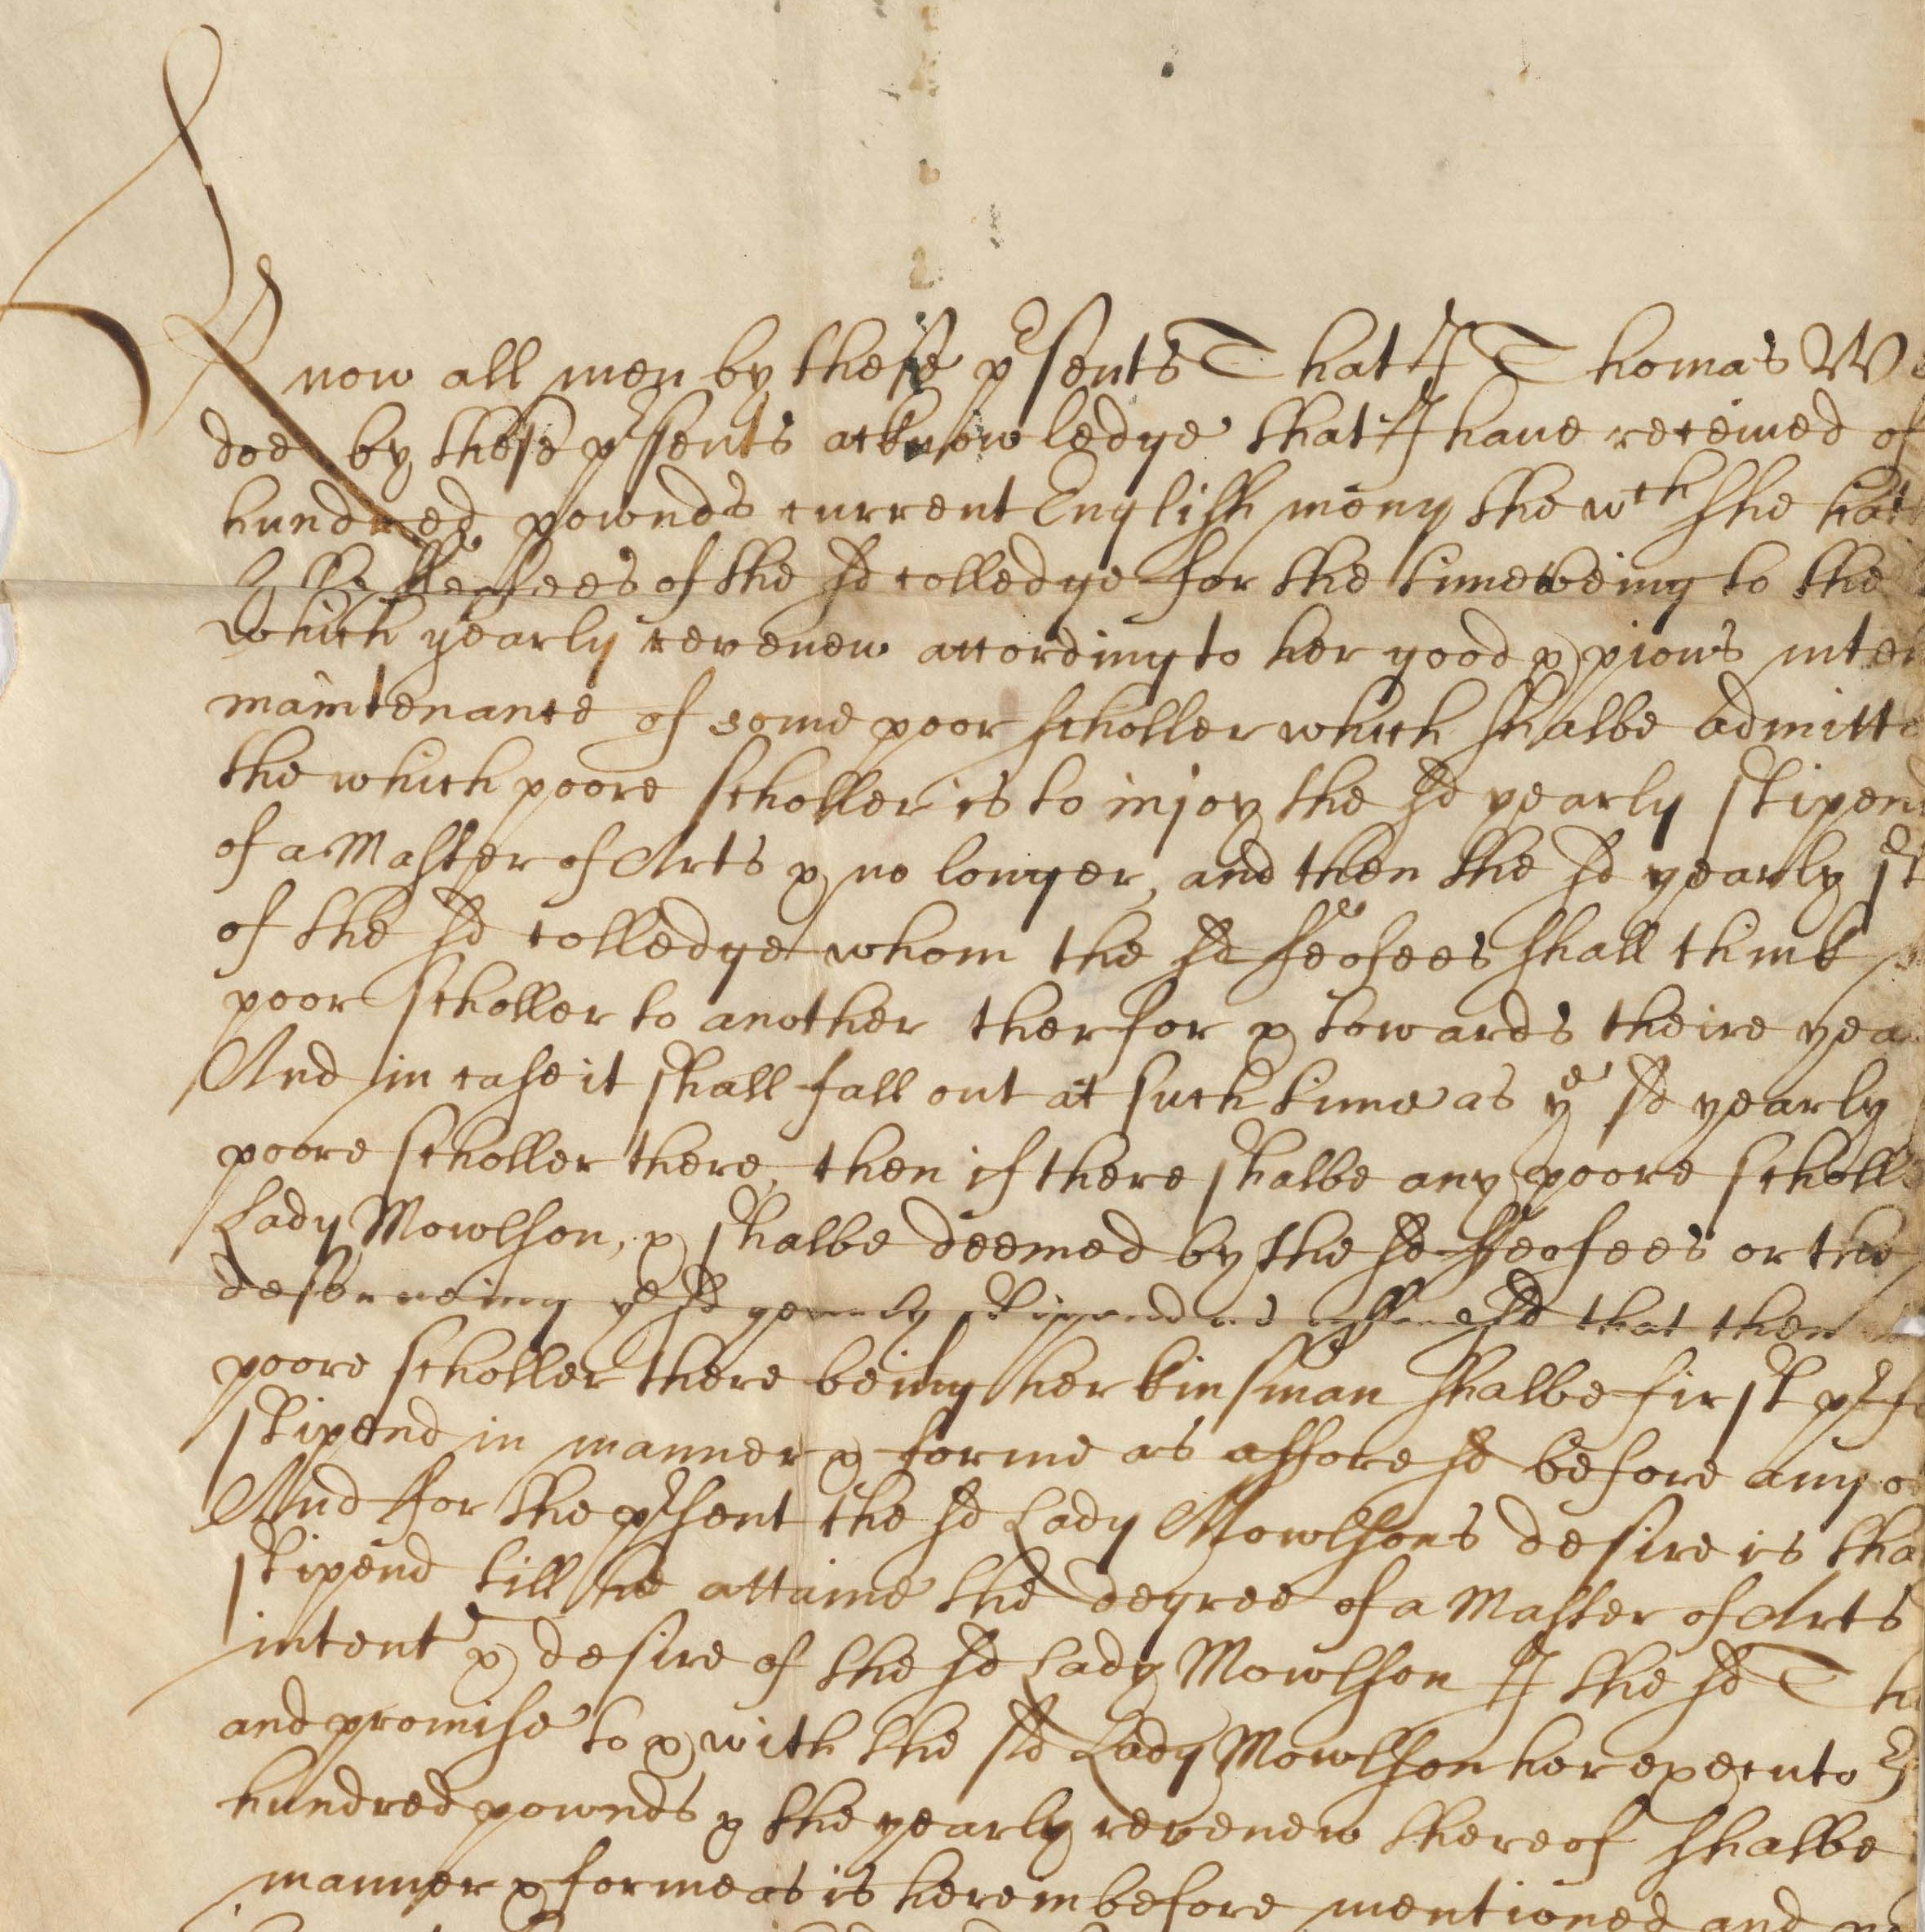 Know all men by these p^rsents That I Thomas We
doe by these p^rsents acknowledge that I haue receiued of
hundred pownds current English mony the w^ch she hat
of the sd colledge for the time being to the
which yearly revenew according to her good & pious inten
maintenance of some poor scholler which shalbe admitte
the which poore scholler is to injoy the sd yearly stipend
of a Master of Arts & no longer, and then the sd yearly st
of the sd colledge whom the sd feofees shall think
poor scholler to another therfor & towards theire yea
And in case it shall fall out at such time as y^e sd yearly
poore scholler there, then if there shalbe any poore scholle
Lady Mowlson, & shalbe deemed by the sd feofees or the
y^e sd yearly stipend as afforesd that then
poore scholler there being her kinsman shalbe first p^rfe
stipend in manner & forme as afforesd before any o
And for the p^rsent the sd Lady Mowlsons desire is tha
stipend till he attaine the degree of a Master of Arts
intent & desire of the sd Lady Mowlson I the sd Th
and promise to & with the sd Lady Mowlson her executo^rs
hundred pownds & the yearly revenew thereof shalbe
manner & forme as is herein before mentioned and